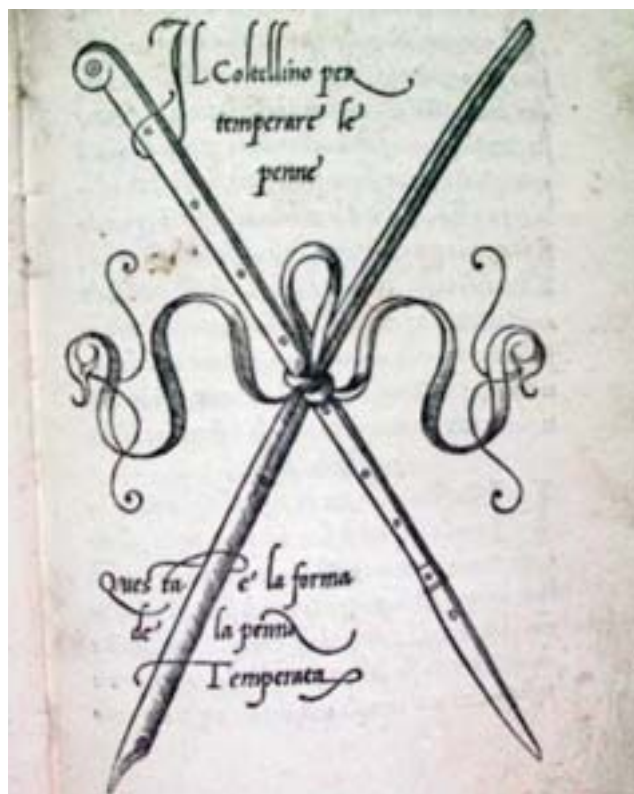 Il Coltellino per
temperare le
penne
Questa e' la forma
de la penna
Temperata